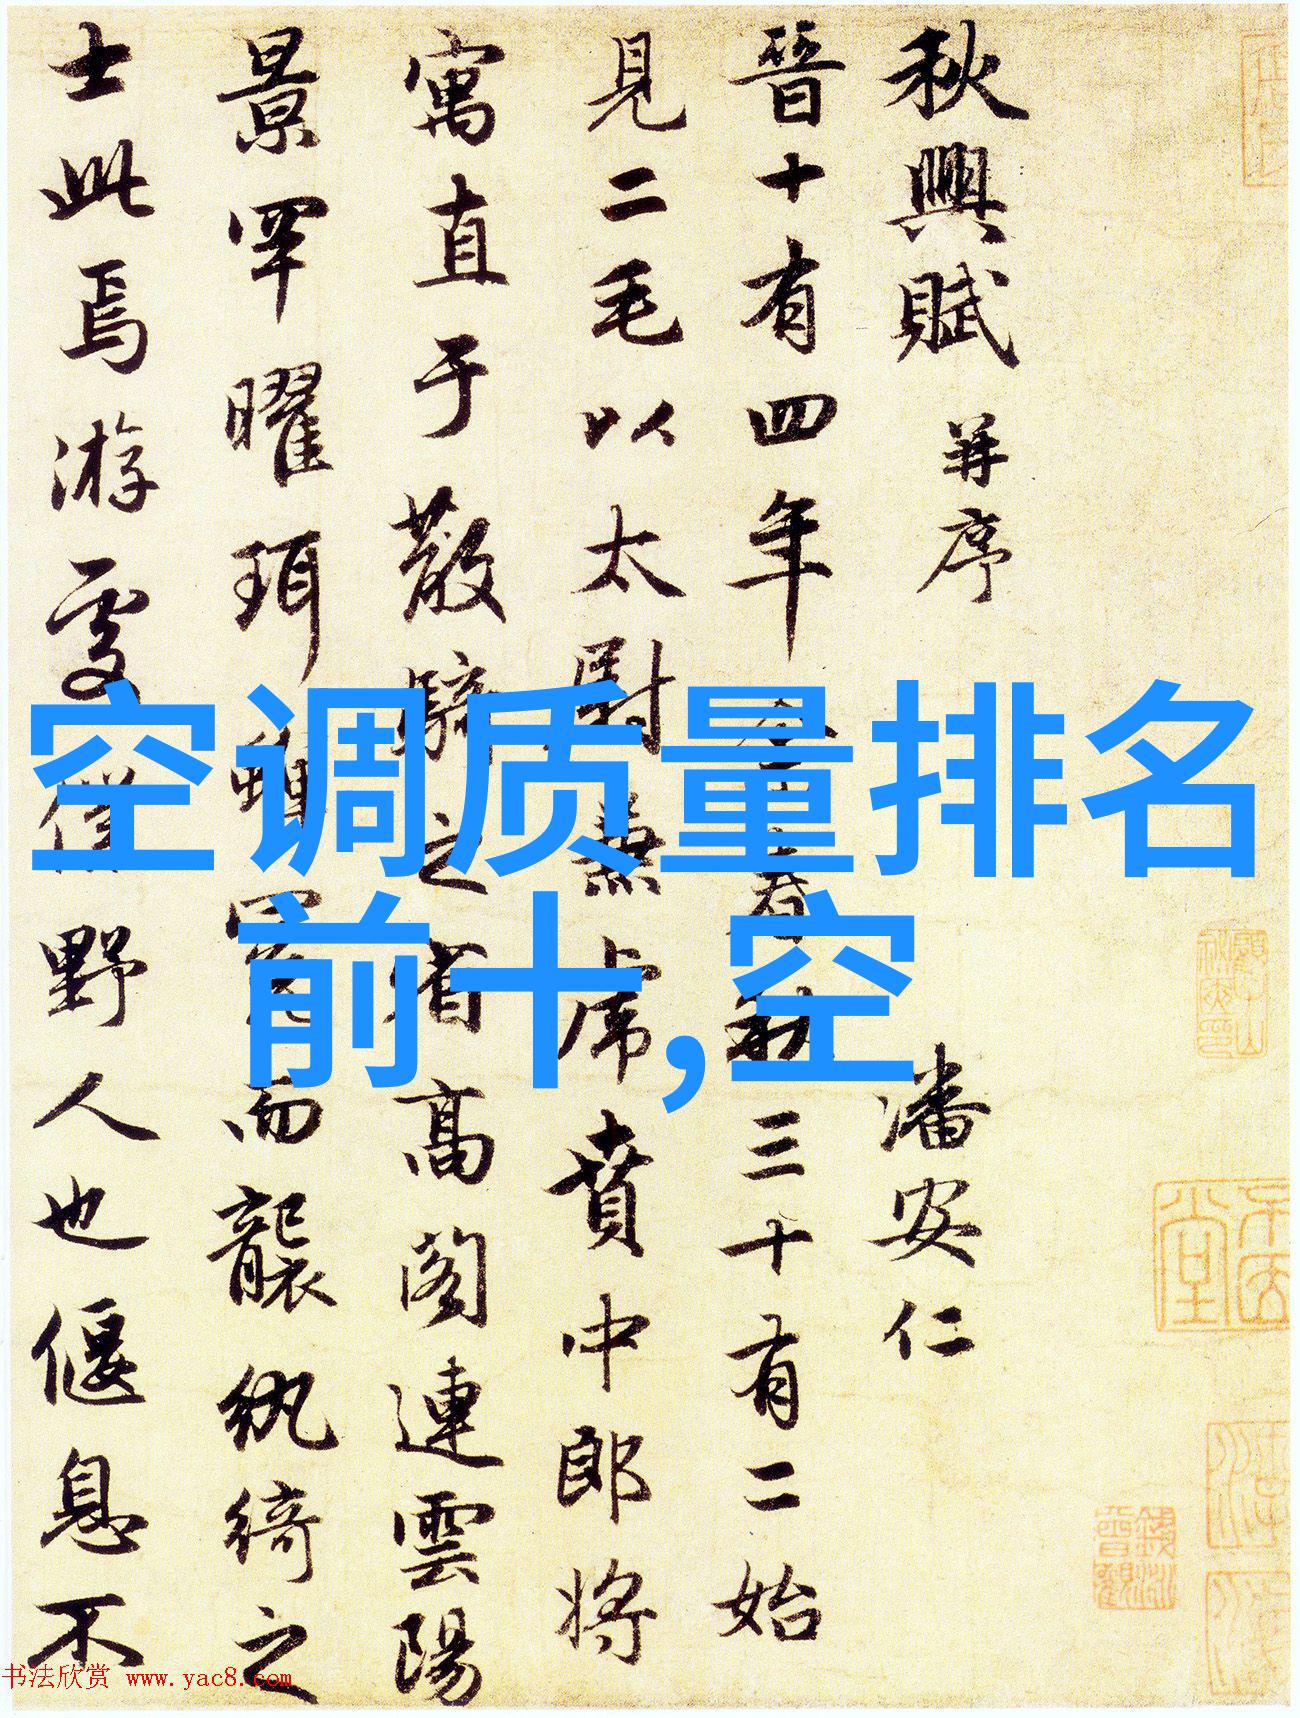 秋興賦 并序
潘安仁
晉十有四年余春秋三十有二始
見二毛以太尉兼虎賁中郎将
寓直于散騎之省高閣連雲陽
景罕曜珥蟬冕而襲紈綺之
士此焉游處僕野人也偃息不
空调质量排名
前十,空
书法欣赏 www.yac8.com